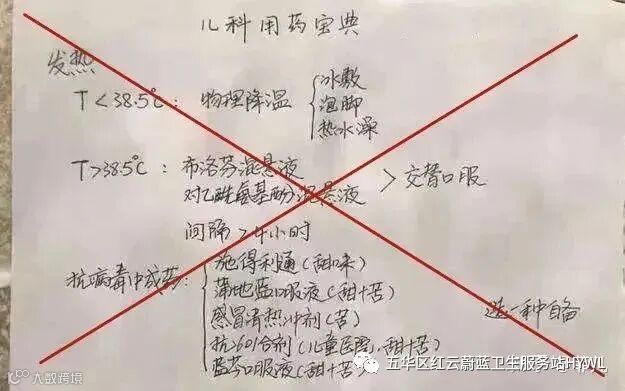 儿科用药宝典
发热
T<38.5℃: 物理降温 { 冰敷
泡脚
热水澡
T>38.5℃: 布洛芬混悬液
对乙酰氨基酚混悬液 > 交替口服
间隔>4小时
抗病毒中成药: { 施得利通(甜味)
蒲地蓝口服液(甜+苦)
感冒清热冲剂(苦)
抗260合剂(儿童医院,甜+苦)
蓝芩口服液(甜+苦)
选一种自备
大数跨境
五华区红云蔚蓝卫生服务站HYWL